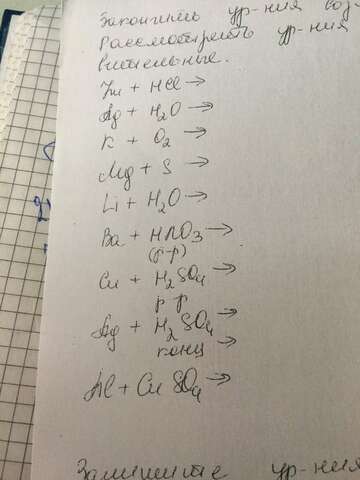 Закончить ур-ния воз-
Рассмотреть ур-ния
вительные.
Zn + HCl →
Ag + H₂O →
K + O₂ →
Mg + S →
Li + H₂O →
Ba + HNO₃ →
(р-р)
Cu + H₂SO₄ →
р-р
Ag + H₂SO₄ →
конц →
Al + CuSO₄ →
ур-ния